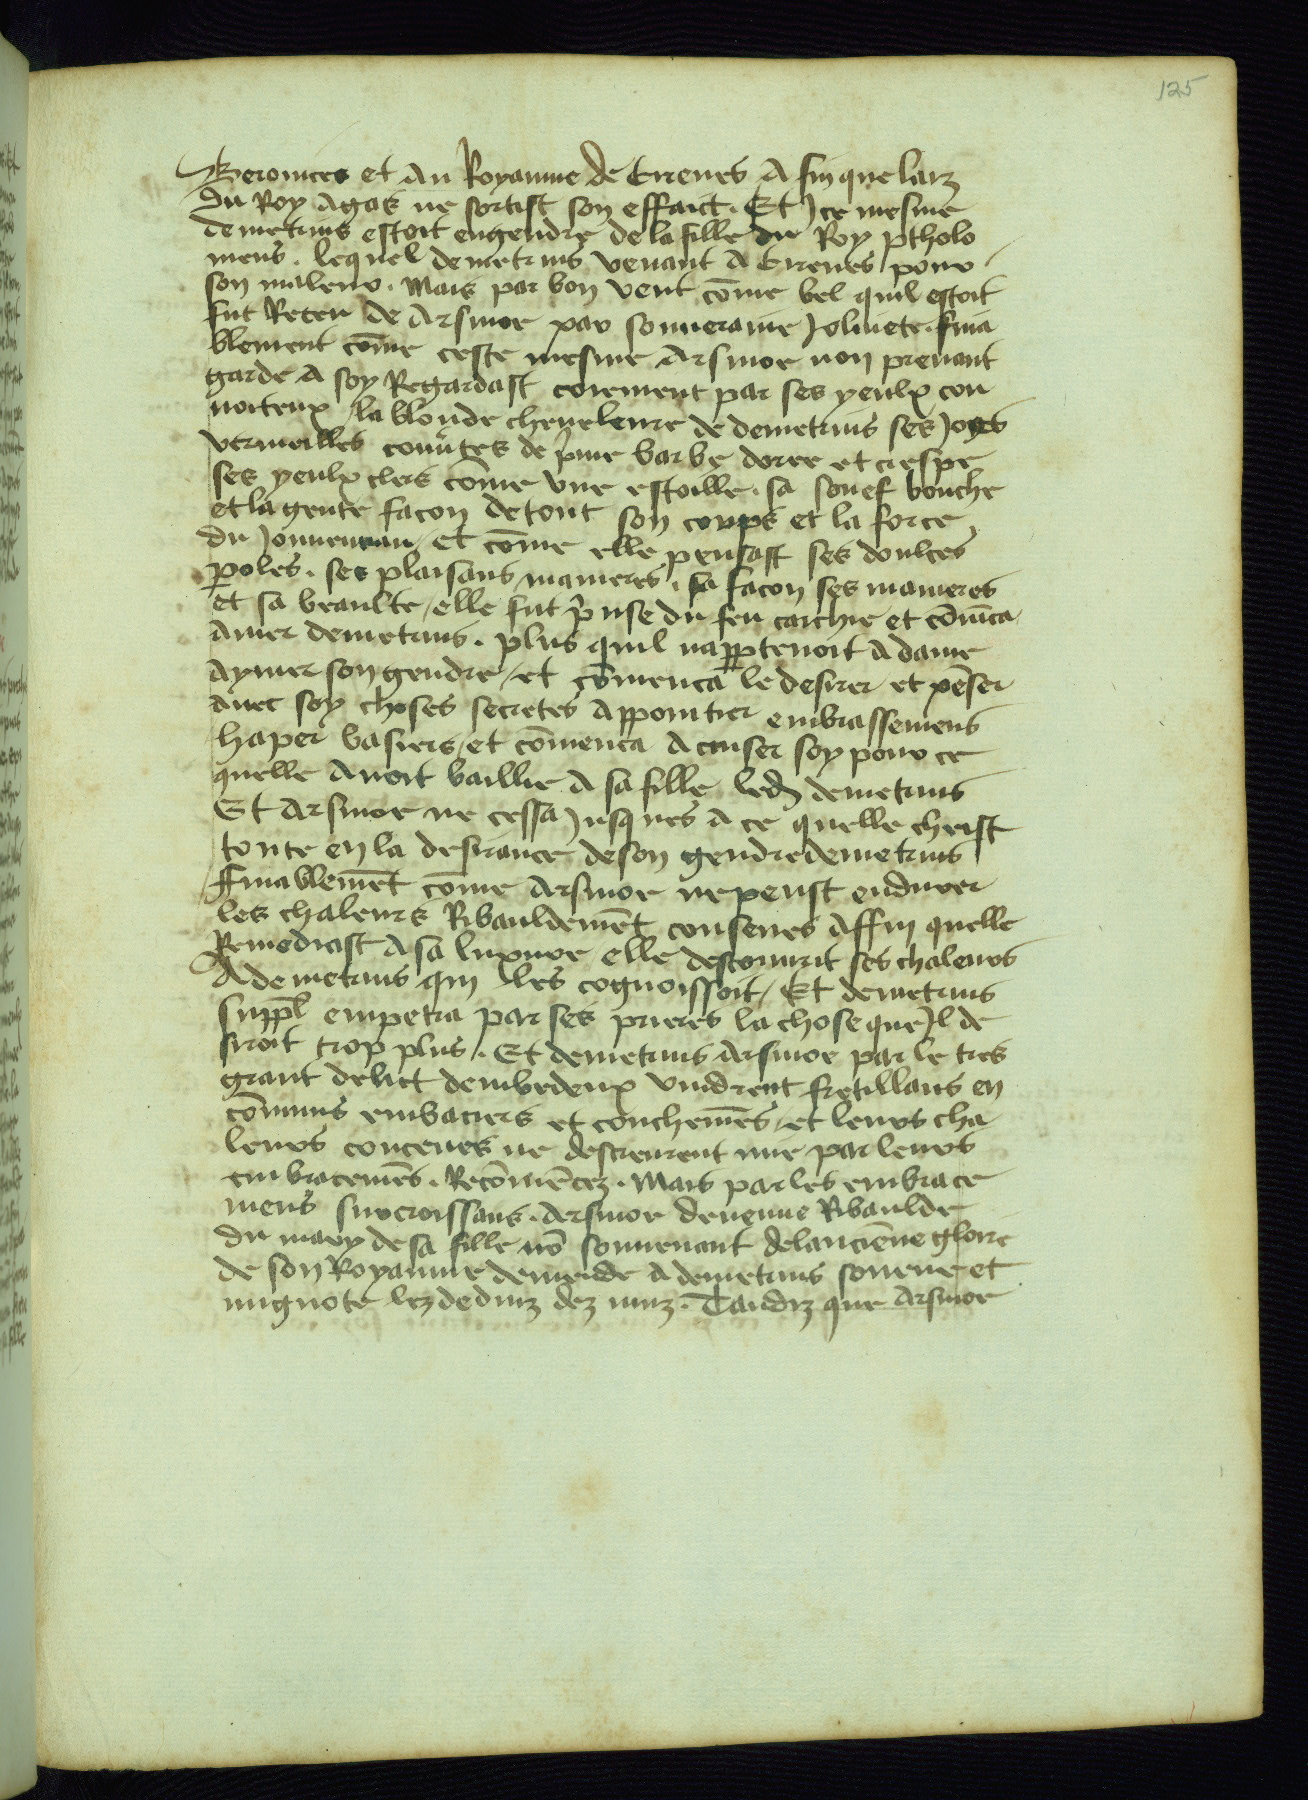 125
Beronices et Au Royaume de Cirenes A fin que larz
du Roy Agas ne sortist son effaict. Et Jce mesme
demetrius estoit engendre de la fille du Roy ptholo
meus. lequel demetrius venant A Cirenes pour
son maleur. Mais par bon vent cōme bel quil estoit
fut Receu de Arsinoe par souueraine Jolinete. fina
blement cōme ceste mesme Arsinoe non prenant
garde A soy Regardast coiement par ses yeulx con
uoiteux la blonde cheueleure de demetrius ses Joes
vermeilles couūtes de p̄me barbe doree et crespe
ses yeulx clers cōme vne estoille. sa souef bouche
et la gente facon de tout son corps et la force
du Jouuencau et cōme elle pensast ses doulces
poles. ses plaisans manieres. sa facon ses manieres
et sa beaulte, elle fut p̄nse du feu cachie et cōmāca
Amer demetrius. plus quil nappꝑtenoit A dame
Aymer son gendre, et cōmenca le desirer et pēser
Auec soy choses secretes Appointier embrassemens
haper basiers, et cōmenca Acuser soy pour ce
quelle Auoit baillie A sa fille led̄ demetrius
Et Arsinoe ne cessa Jusques A ce quelle cheist
toute en la desirance de son gendre demetrius
Ffinablemēt cōme Arsinoe ne peust endurer
les chaleurs Ribauldemēt conseues Affin quelle
Remediast A sa luxure elle descouurit ses chaleurs
A demetrius qui les cognoissoit, Et demetrius
suppl̄ empetra par ses prieres la chose que Jl de
siroit trop plus. Et demetrius Arsinoe par le tres
grant delict dembedeux vindrent fretillans en
cōmuns embaciers et couchemēs, et leurs cha
leurs conceues ne descreurent mie par leurs
embracemēs. Recōmēcez. Mais par les embrace
mens surcroissans. Arsinoe deuenue Ribaulde
du mary de sa fille nō souuenant de lanciēne gloire
de son Royaume demende A demetrius souene et
mignote lez deduiz dez nuiz. Tandiz que Arsinoe